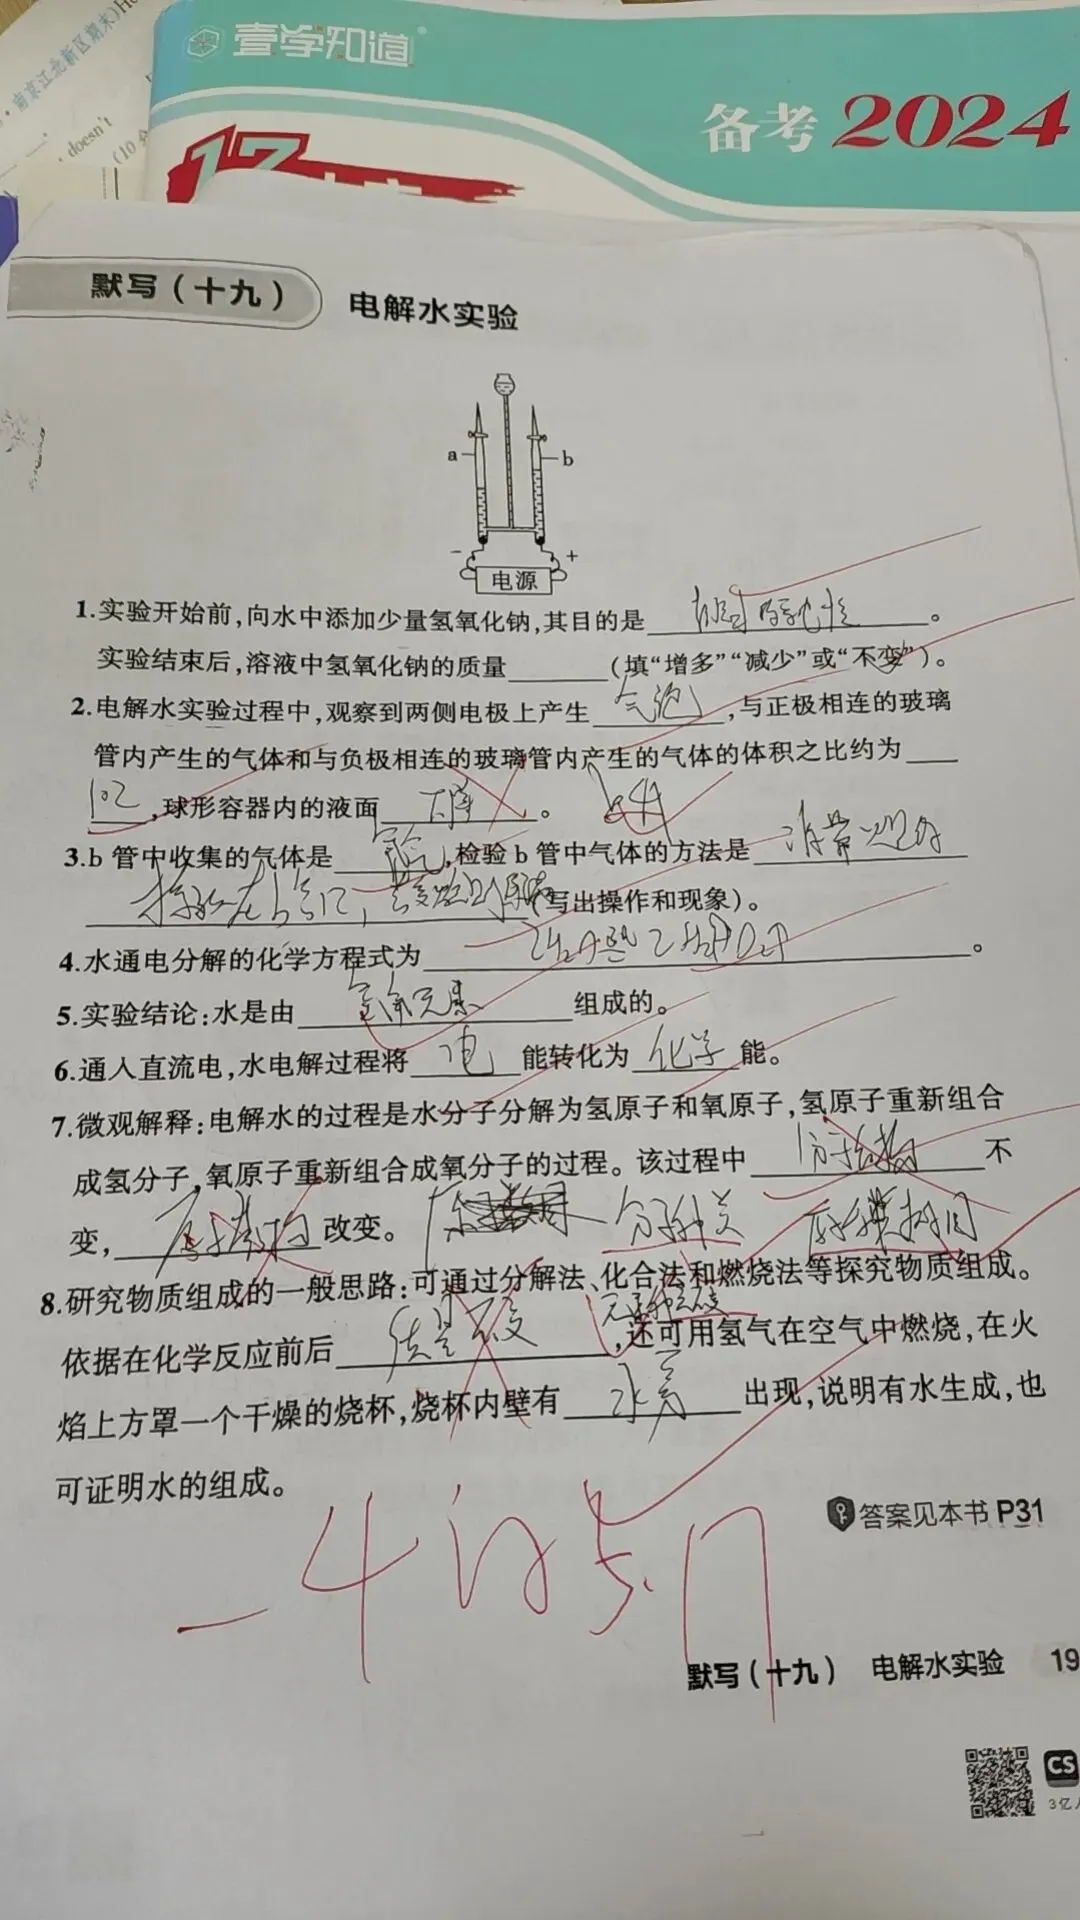 南京江北新区期末)
doesn't
(10分
壹学知道
备考2024
默写(十九) 电解水实验
a b
- +
电源
1.实验开始前,向水中添加少量氢氧化钠,其目的是 增强导电性 。
实验结束后,溶液中氢氧化钠的质量 (填“增多”“减少”或“不变”)。
2.电解水实验过程中,观察到两侧电极上产生 气泡 ,与正极相连的玻璃
管内产生的气体和与负极相连的玻璃管内产生的气体的体积之比约为
1:2 ,球形容器内的液面 下降 。 上升
3.b 管中收集的气体是 氧气 ,检验 b 管中气体的方法是
(写出操作和现象)。
4.水通电分解的化学方程式为 。
5.实验结论:水是由 氢氧元素 组成的。
6.通入直流电,水电解过程将 电 能转化为 化学 能。
7.微观解释:电解水的过程是水分子分解为氢原子和氧原子,氢原子重新组合
成氢分子,氧原子重新组合成氧分子的过程。该过程中 分子结构 不
变, 改变。 分子种类
8.研究物质组成的一般思路:可通过分解法、化合法和燃烧法等探究物质组成。
元素种类不变
依据在化学反应前后 质量不变 ,还可用氢气在空气中燃烧,在火
焰上方罩一个干燥的烧杯,烧杯内壁有 水雾 出现,说明有水生成,也
可证明水的组成。
答案见本书 P31
-4
默写(十九) 电解水实验 19
CS
3亿